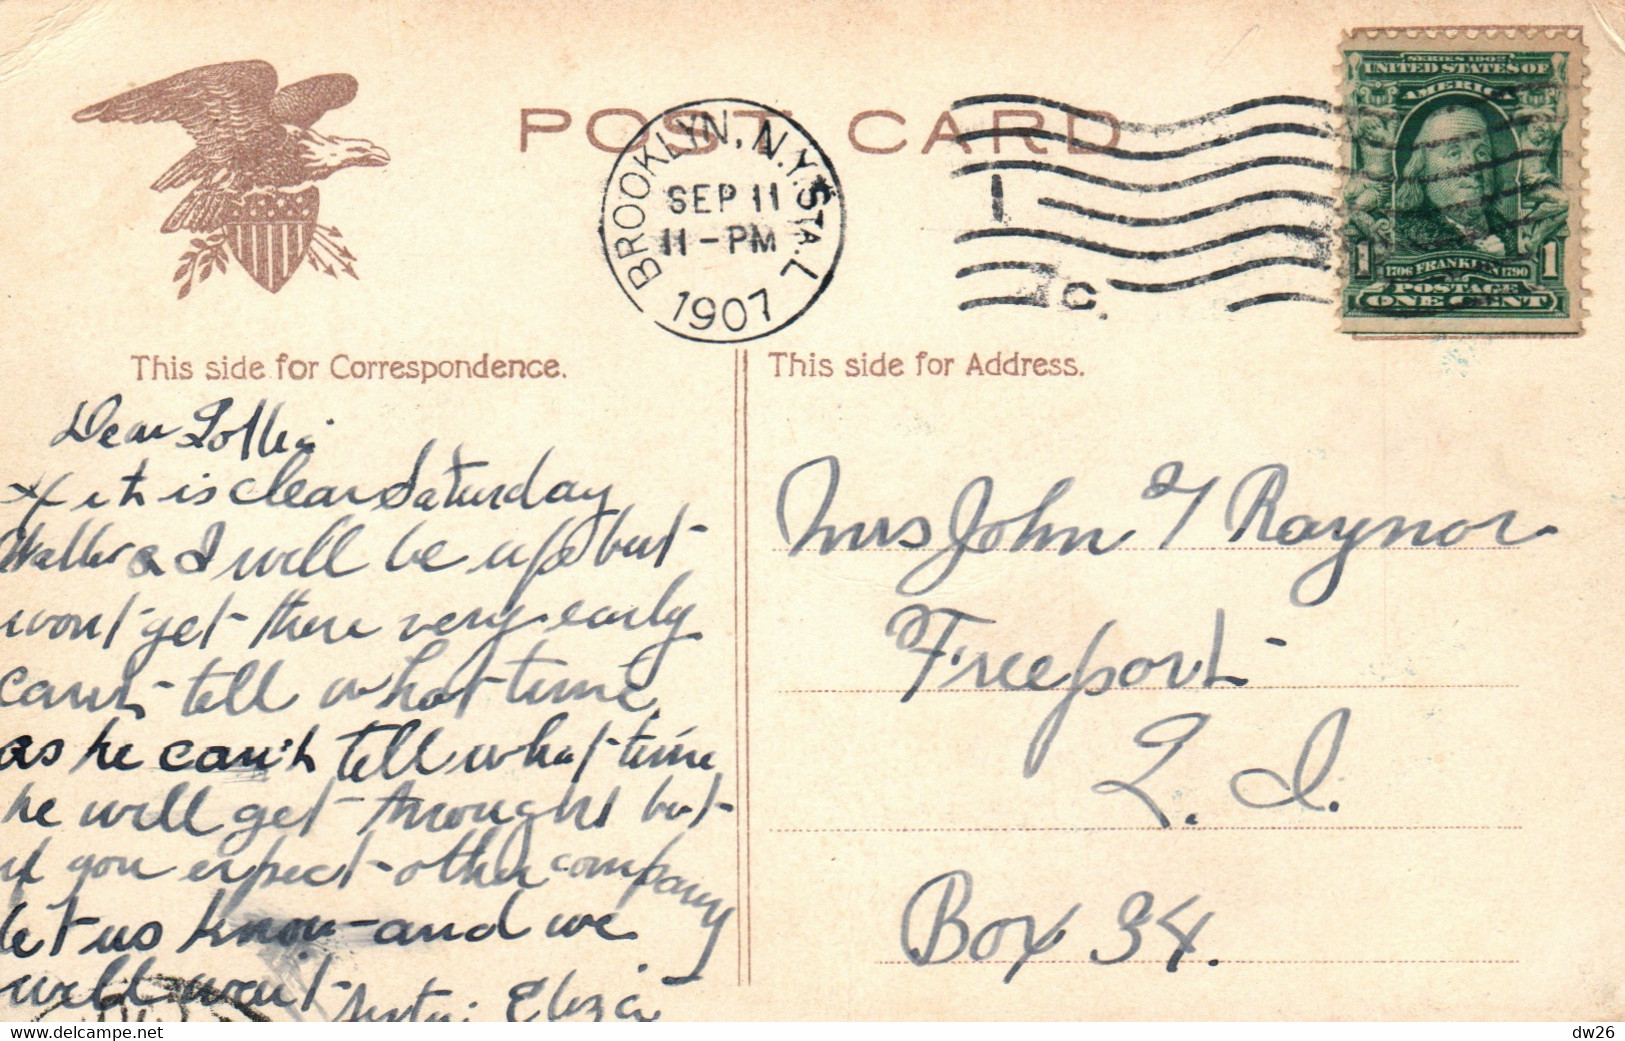 POST CARD
BROOKLYN, N.Y. STA. L
SEP 11
11-PM
1907
1
C.
SERIES 1902
UNITED STATES OF
AMERICA
1 1706 FRANKLIN 1790 1
POSTAGE
ONE CENT
This side for Correspondence.
Dear Lottie
if it is clear Saturday
Walter & I will be up but
wont get there very early
can't tell what time
as he can't tell what time
he will get throught but
if you expect other company
let us know and we
will wait.
Sister Eliza
This side for Address.
Mrs John Raynor
Freeport
L. I.
Box 34.
www.delcampe.net
dw26